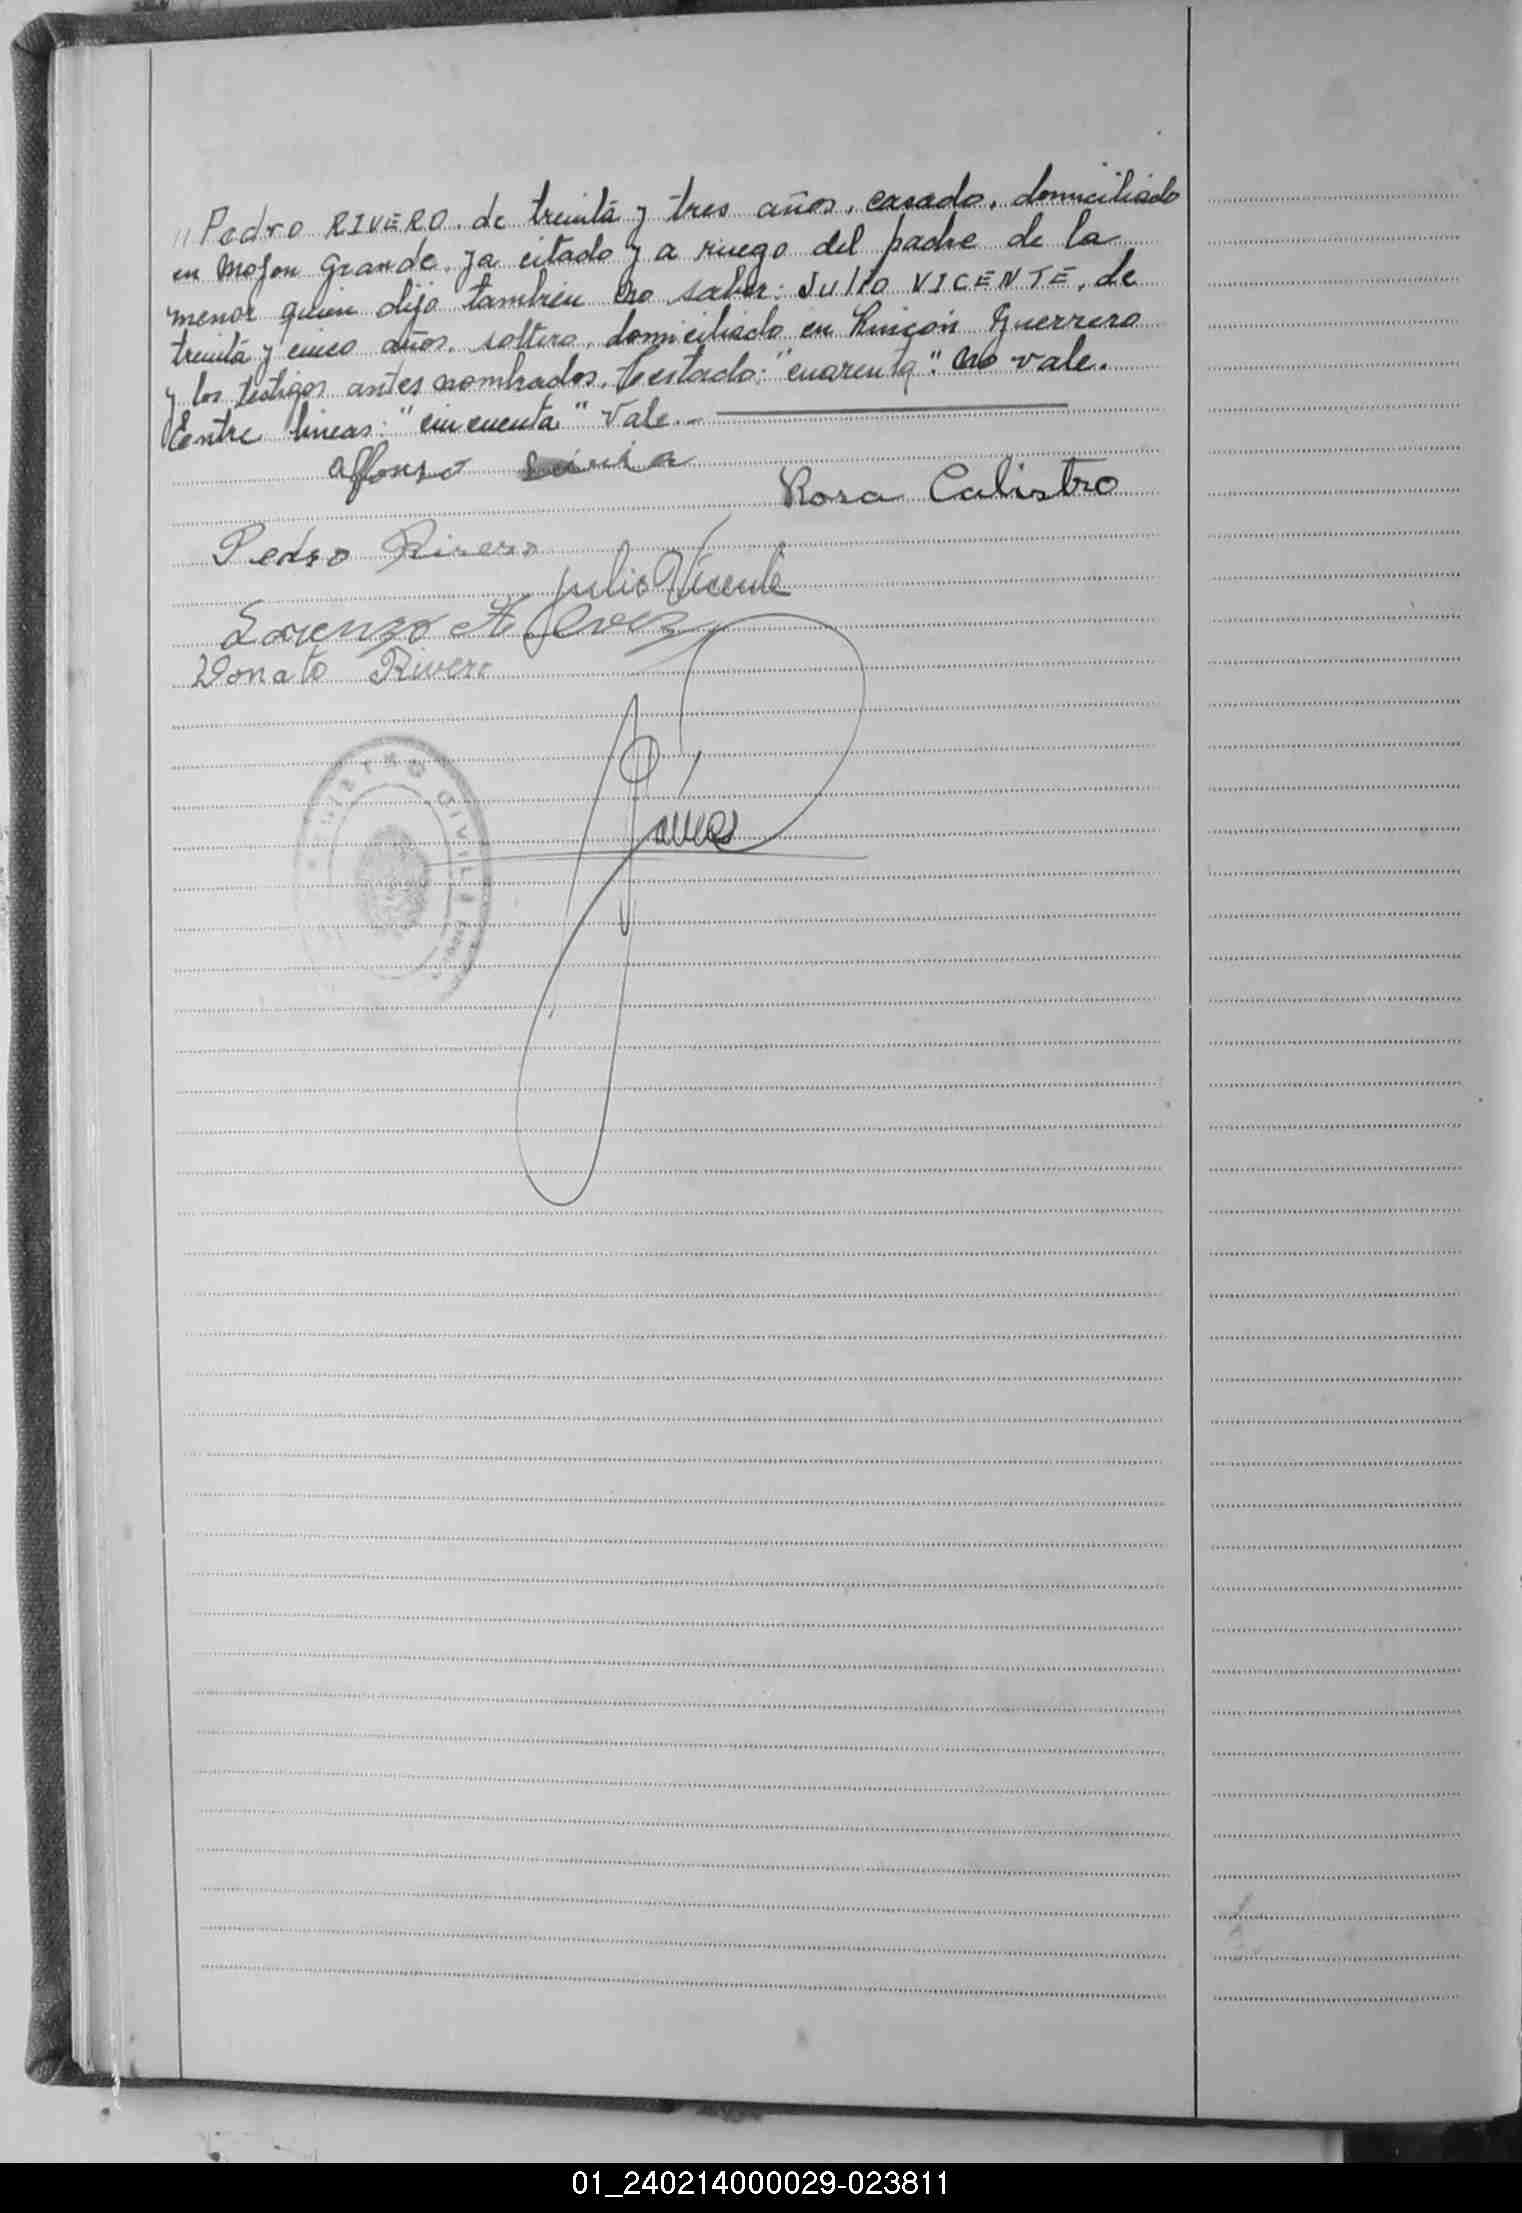 " Pedro RIVERO. de treinta y tres años, casado, domiciliado
en Mojon Grande, ya citado y a ruego del padre de la
menor quien dijo tambien no saber: Julio VICENTE, de
treinta y cinco años, soltero, domiciliado en Rincón Guerrero
y los testigos antes nombrados. Testado: "cuarenta". No vale.
Entre lineas: "cincuenta" Vale.-
Alfonso
Rosa Calistro
Pedro Rivero
Julio Vicente
Lorenzo A.
Donato Rivero
REGISTRO CIVIL
01_240214000029-023811